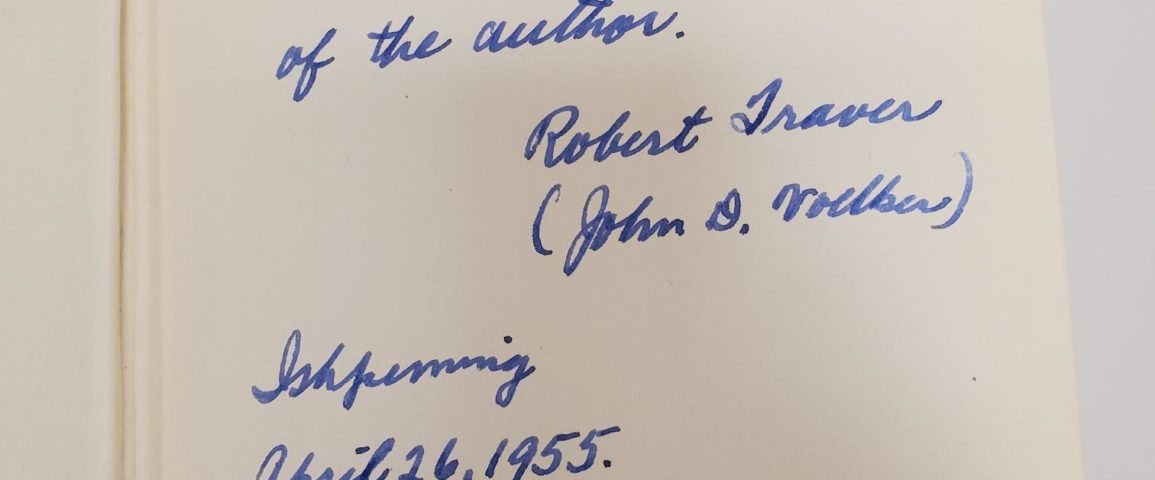 of the author.
Robert Traver
(John D. Voelker)
Ishpeming
April 26, 1955.